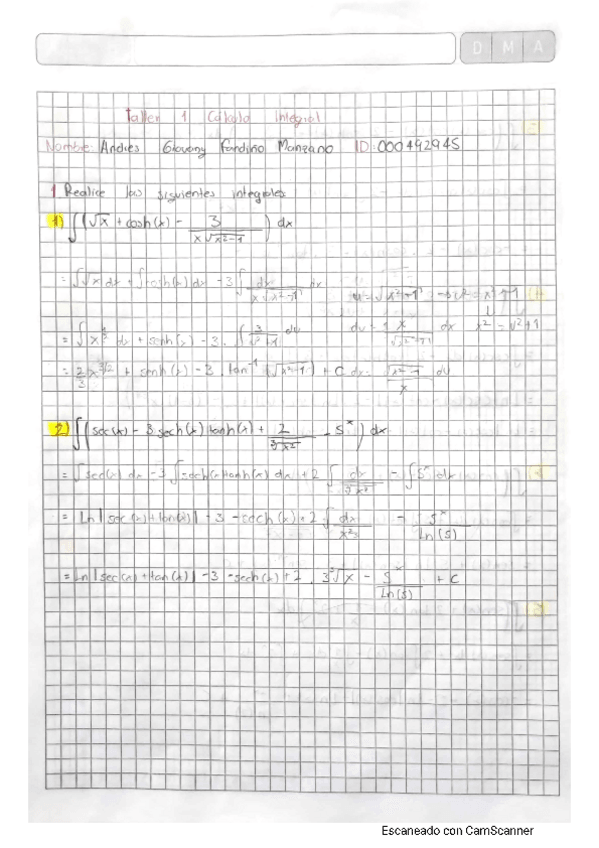 DMA
Taller 1 Cálculo Integral
Nombre: Andres Giovany Fandiño Manzano ID: 000492945
1. Realice las siguientes integrales
1) ∫(√x + cosh(x) - 3/(x√(x²-1))) dx
= ∫√x dx + ∫cosh(x) dx - 3∫ dx/(x√(x²-1))
= 2/3 x^(3/2) + senh(x) - 3 · tan⁻¹(√(x²-1)) + C
2) ∫(sec(x) - 3 sech(x) tanh(x) + 2/∛x² - 5^x) dx
= ∫sec(x) dx - 3∫sech(x) tanh(x) dx + 2∫ dx/∛x² - ∫5^x dx
= Ln|sec(x)+tan(x)| - 3 -sech(x) + 2∫ dx/x^(2/3) - 5^x/Ln(5)
= Ln|sec(x)+tan(x)| - 3 -sech(x) + 2 · 3∛x - 5^x/Ln(5) + C
Escaneado con CamScanner